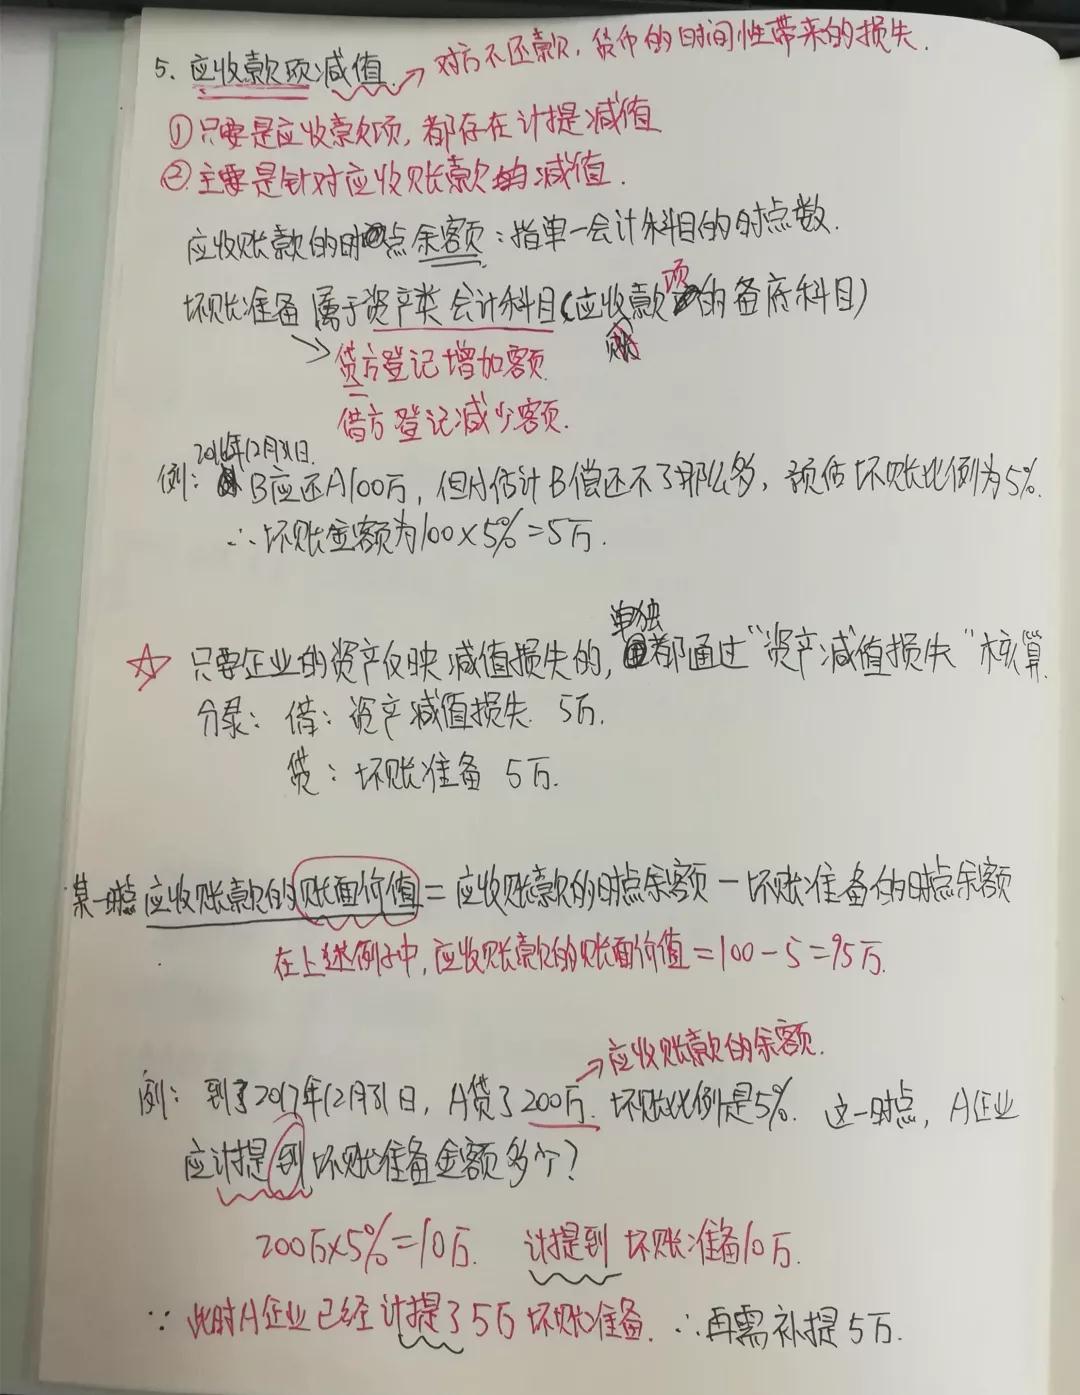 5、应收款项减值 → 对方不还款，货币的时间性带来的损失.
①只要是应收款项，都存在计提减值
②主要是针对应收账款的减值.
应收账款的时点余额：指单一会计科目的时点数.
坏账准备属于资产类会计科目(应收账款项的备底科目)
贷方登记增加额
借方登记减少额.
2016年12月31日.
例：B应还A100万，但A估计B偿还不了那么多，预估坏账比例为5%.
∴坏账金额为100×5%=5万.
单独
☆ 只要企业的资产仅映减值损失的，都通过"资产减值损失"核算
分录：借：资产减值损失 5万.
贷：坏账准备 5万.
某一时点应收账款的账面价值=应收账款的时点余额-坏账准备的时点余额
在上述例子中，应收账款的账面价值=100-5=95万.
→应收账款的余额.
例：到了2017年12月31日，A贷了200万.坏账比例是5%.这一时点，A企业
应计提到坏账准备金额多少?
200万×5%=10万. 计提到坏账准备10万.
∵此时A企业已经计提了5万坏账准备. ∴再需补提5万.